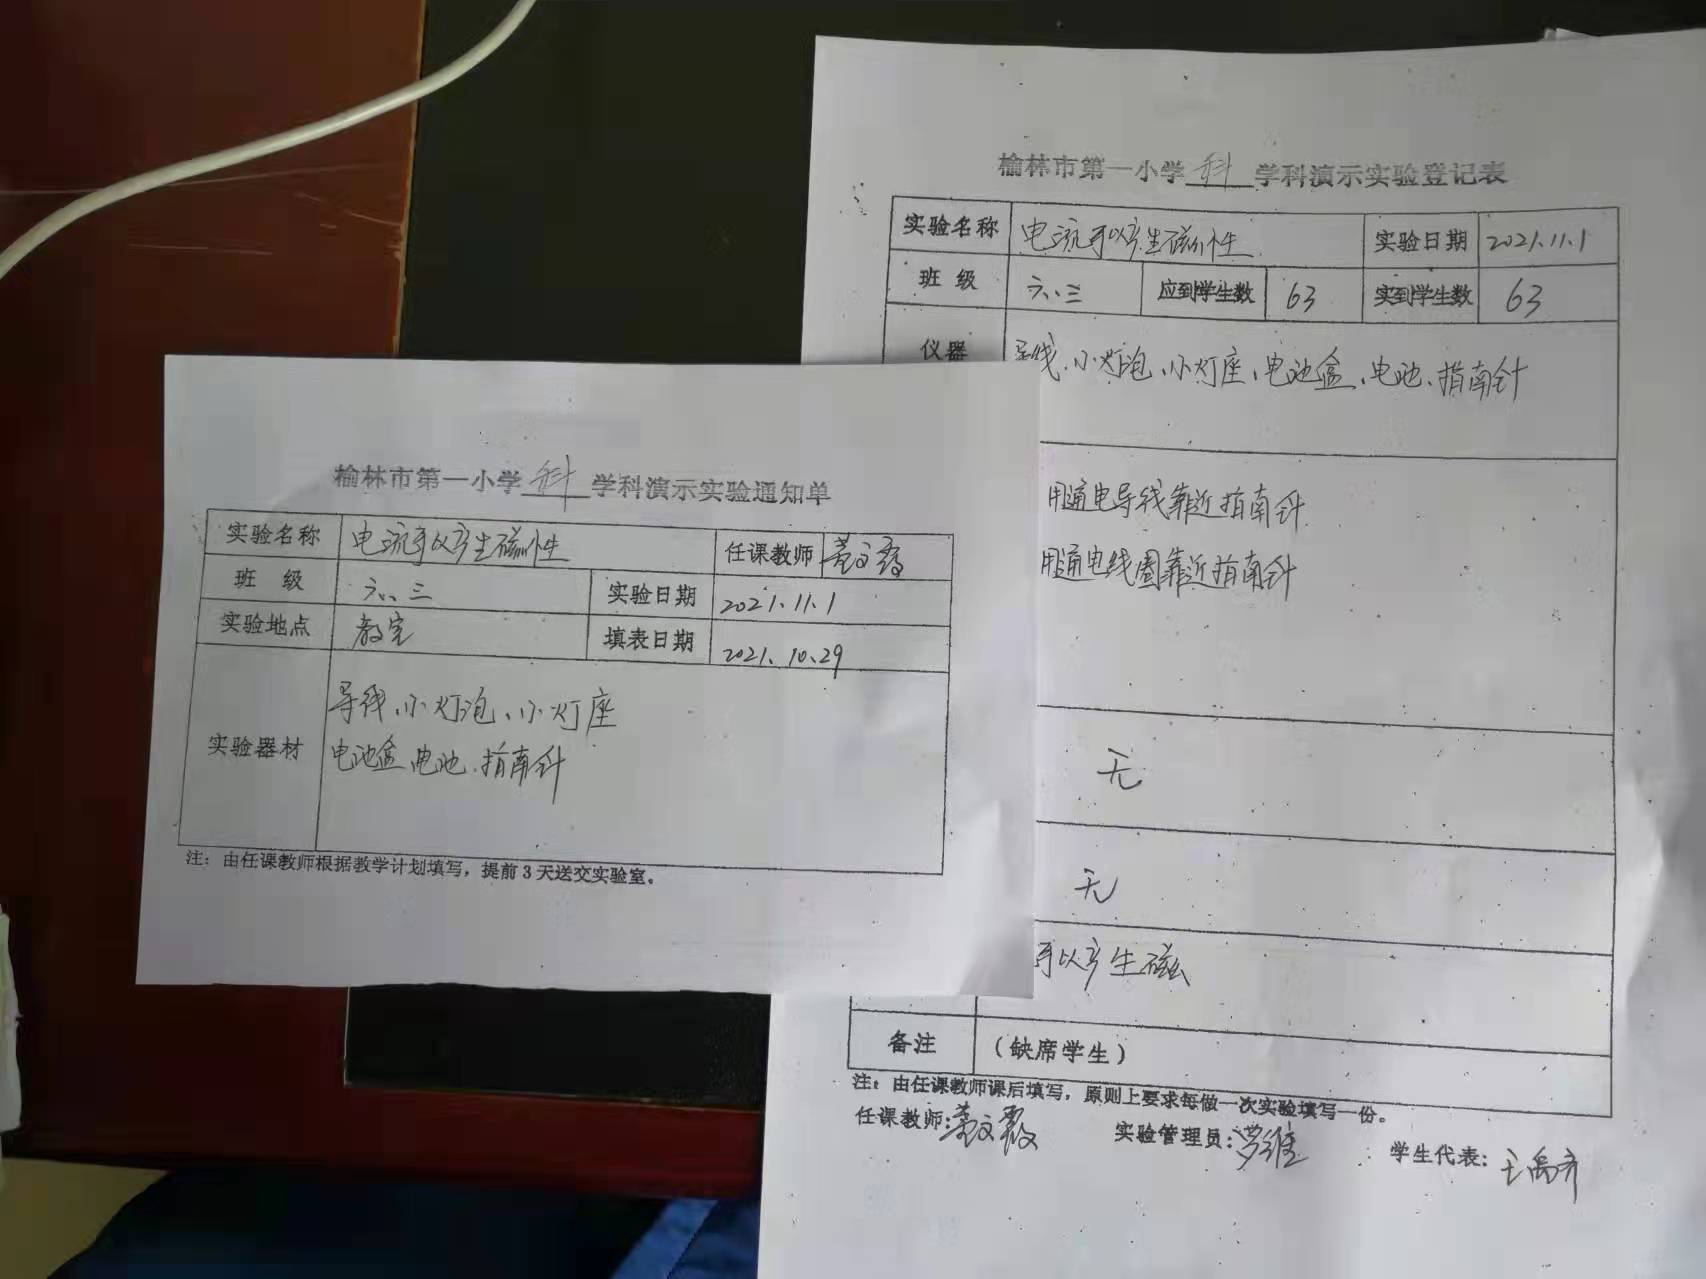 榆林市第一小学 科 学科演示实验通知单
实验名称 电流可以产生磁性 任课教师
班 级 六.三 实验日期 2021.11.1
实验地点 教室 填表日期 2021.10.29
实验器材 导线、小灯泡、小灯座
电池盒、电池、指南针
注：由任课教师根据教学计划填写，提前3天送交实验室。
榆林市第一小学 科 学科演示实验登记表
实验名称 电流可以产生磁性 实验日期 2021.11.1
班 级 六.三 应到学生数 63 实到学生数 63
仪器 导线、小灯泡、小灯座、电池盒、电池、指南针
用通电导线靠近指南针
用通电线圈靠近指南针
无
无
可以产生磁
备注 （缺席学生）
注：由任课教师课后填写，原则上要求每做一次实验填写一份。
任课教师: 实验管理员:罗维 学生代表: